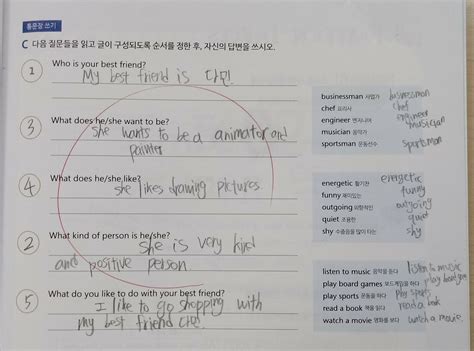 통문장 쓰기
C 다음 질문들을 읽고 글이 구성되도록 순서를 정한 후, 자신의 답변을 쓰시오.
1 Who is your best friend?
My best friend is 다민!
3 What does he/she want to be?
she wants to be a animator and
painter
4 What does he/she like?
she likes drawing pictures
2 What kind of person is he/she?
she is very kind
and positive person.
5 What do you like to do with your best friend?
I like to go shopping with
my best friend 다민.
businessman 사업가 businessman
chef 요리사 chef
engineer 엔지니어 engineer
musician 음악가 musician
sportsman 운동선수 sportsman
energetic 활기찬 energetic
funny 재미있는 funny
outgoing 외향적인 outgoing
quiet 조용한 quiet
shy 수줍음을 많이 타는 shy
listen to music 음악을 듣다 listen to music
play board games 보드게임을 하다 play board game
play sports 운동을 하다 play sports
read a book 책을 읽다 read a book
watch a movie 영화를 보다 watch a movie